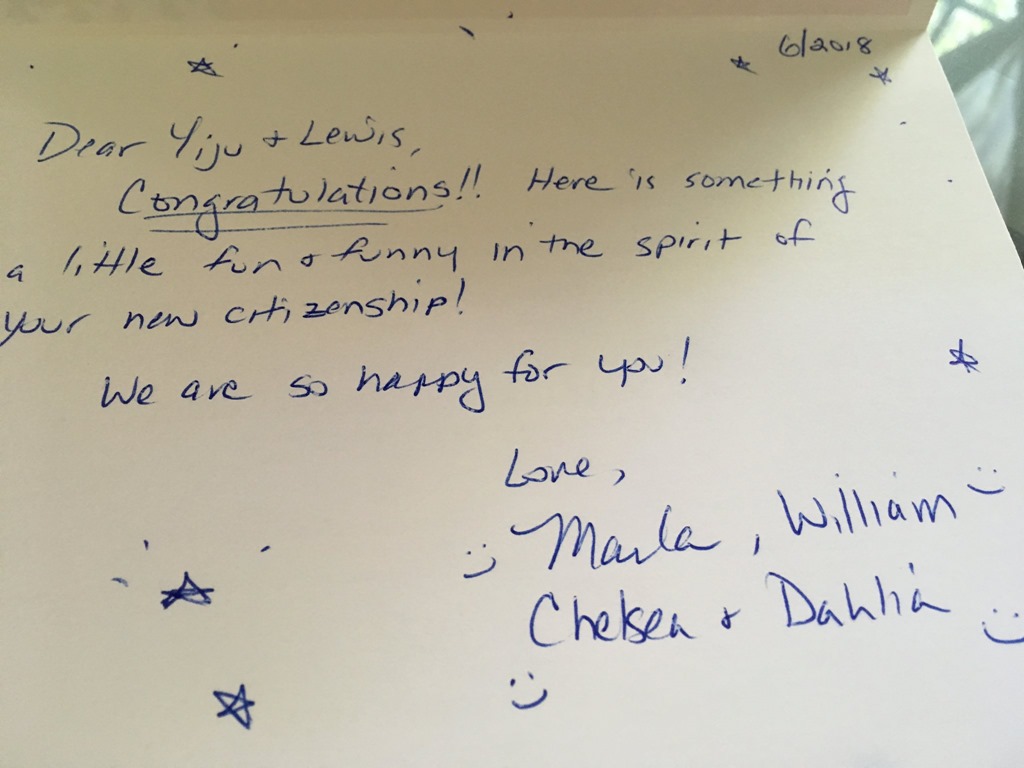 6/2018
Dear Yiju + Lewis,
Congratulations!! Here is something
a little fun + funny in the spirit of
your new citizenship!
We are so happy for you!
Love,
Marla, William
Chelsea + Dahlia